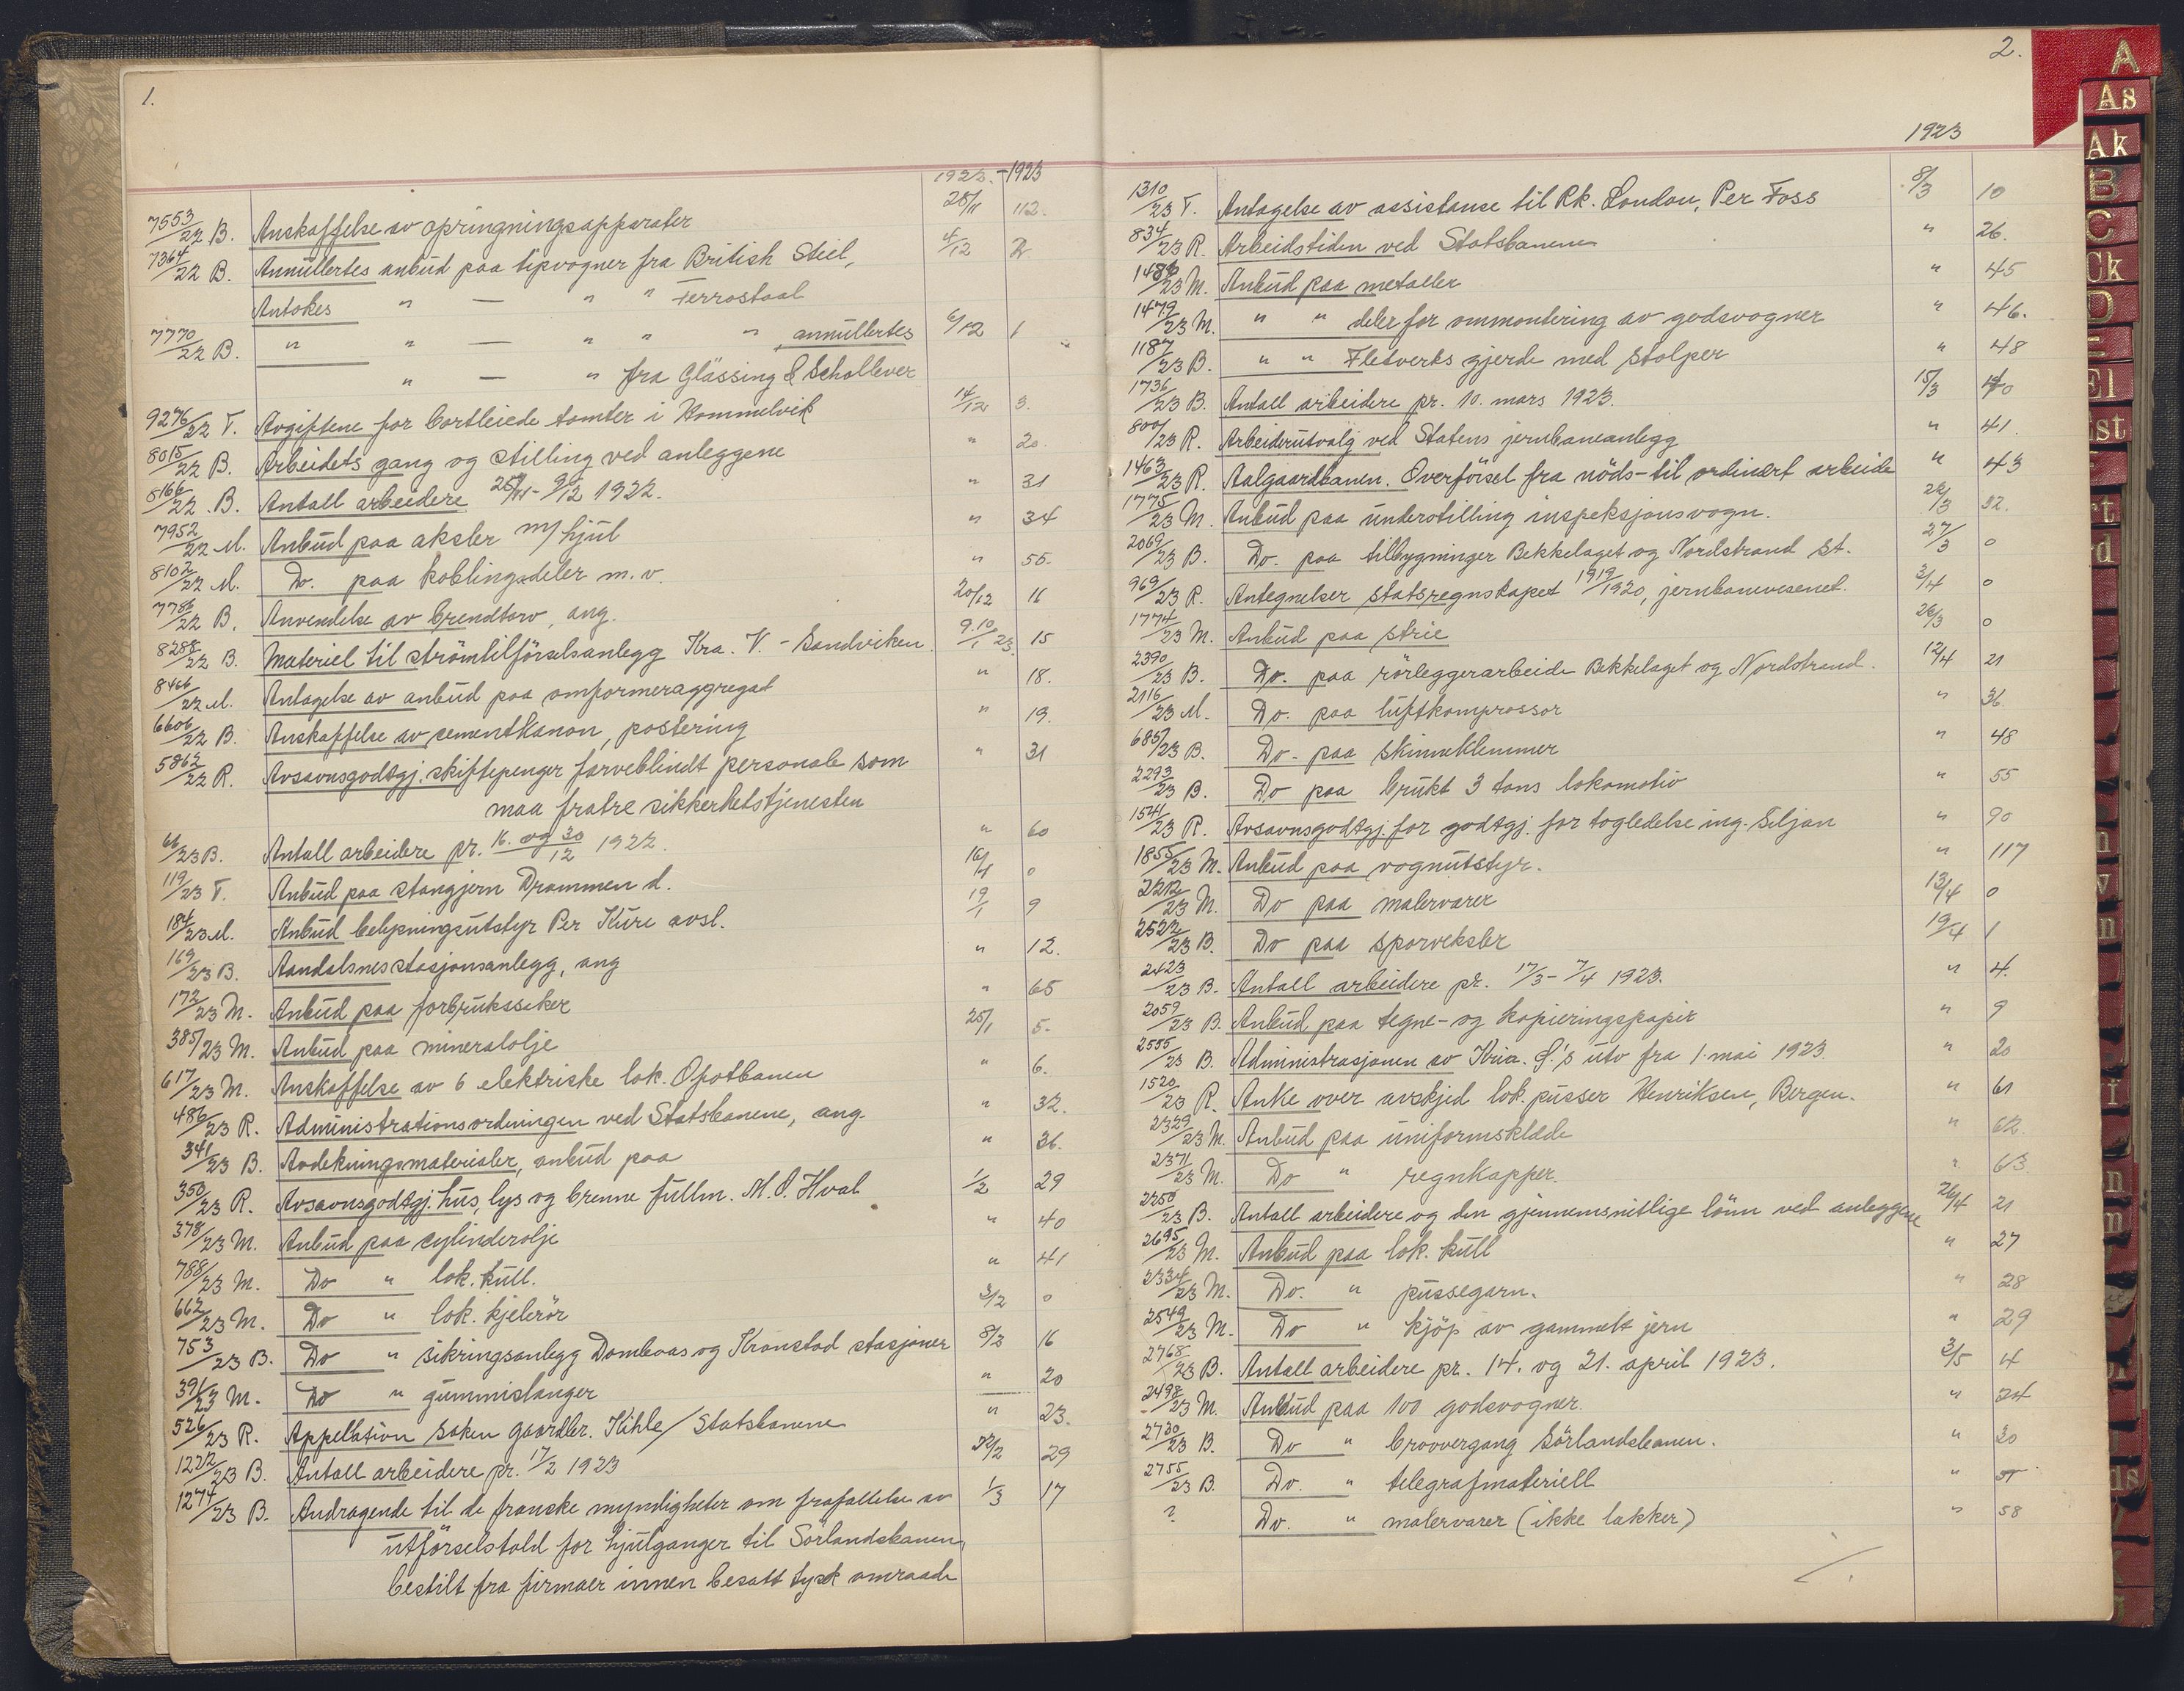 1.
1922.-1923
7553/22 B. Anskaffelse av opringningsapparater 28/11 112.
7364/22 B. Annullertes anbud paa tipvogner fra British Steel, 4/12 2
Antokes " — " " Ferrostaal
7770/22 B. " " — " " " annullertes 6/12 1
" — " fra Glässing & Schollwer
9276/22 T. Avgiftene for bortleiede tomter i Hommelvik 14/12 3.
8015/22 B. Arbeidets gang og stilling ved anleggene " 20.
8166/22 B. Antall arbeidere 25/11 - 9/12 1922. " 31
7952/22 M. Anbud paa aksler m/ hjul " 34
8102/22 M. Do. paa koblingsdeler m. v. " 55.
7786/22 B. Anvendelse av brendtorv, ang. 20/12 16
8288/22 B. Materiel til strömtilförselsanlegg Kra. V. - Sandviken 9.10/1 23. 15
8466/22 M. Antagelse av anbud paa omformeraggregat " 18.
6606/22 B. Anskaffelse av cementkanon, postering " 19.
5862/22 R. Avsavnsgodtgj. skiftepenger farveblindt personale som " 31
maa fratre sikkerhetstjenesten
66/23 B. Antall arbeidere pr. 16. og 30/12 1922. " 60
119/23 T. Anbud paa stangjern Drammen d. 16/1 0
184/23 M. Anbud belysningsutstyr Per Kure avsl. 19/1 9
169/23 B. Aandalsnes stasjonsanlegg, ang " 12.
172/23 M. Anbud paa forbrukssaker " 65
385/23 M. Anbud paa mineralolje 25/1 5.
617/23 M. Anskaffelse av 6 elektriske lok. Ofotbanen " 6.
486/23 R. Administrationsordningen ved Statsbanene, ang " 32.
341/23 B. Avdekningsmaterialer, anbud paa " 36.
350/23 R. Avsavnsgodtgj. hus, lys og brenne fullm. M. O. Hval 1/2 29
378/23 M. Anbud paa cylinderolje " 40
788/23 M. Do " lok. kull. " 41
662/23 M. Do " lok. kjelerör 3/2 0
753/23 B. Do " sikringsanlegg Dombaas og Kronstad stasjoner 8/2 16
391/23 M. Do " gummislanger " 20
526/23 R. Appelation saken gaardbr. Kihle / Statsbanene " 23.
1222/23 B. Antall arbeidere pr. 17/2 1923 22/2 29
1274/23 B. Andragende til de franske myndigheter om frafallelse av 1/3 17
utförselstold for hjulganger til Sörlandsbanen,
bestilt fra firmaer innen besatt tysk omraade
2.
1923
1310/23 T. Antagelse av assistanse til Rk. London, Per Foss 8/3 10
834/23 R. Arbeidstiden ved Statsbanene " 26.
1486/23 M. Anbud paa metaller " 45
1479/23 M. " " deler for ommontering av godsvogner " 46.
1187/23 B. " " Fletverks gjerde med stolper " 48
1736/23 B. Antall arbeidere pr. 10. mars 1923. 15/3 40
800/23 R. Arbeiderutvalg ved Statens jernbaneanlegg " 41
1463/23 R. Aalgaardbanen. Overförsel fra nöds- til ordinært arbeide " 43
1775/23 M. Anbud paa understilling inspeksjonsvogn. 22/3 32.
2069/23 B. Do. paa tilbygninger Bekkelaget og Nordstrand st. 27/3 0
969/23 R. Antegnelser statsregnskapet 1919/1920, jernbanevesenet. 3/4 0
1774/23 M. Anbud paa strie 26/3 0
2390/23 B. Do. paa rörleggerarbeide Bekkelaget og Nordstrand. 12/4 21
2116/23 M. Do. paa luftkompressor " 36.
685/23 B. Do. paa skinneklemmer " 48
2293/23 B. Do paa brukt 3 tons lokomotiv " 55
1541/23 R. Avsavnsgodtgj. for godtgj. for togledelse ing. Siljan " 90
1855/23 M. Anbud paa vognutstyr. " 117
2212/23 M. Do paa malervarer 13/4 0
2522/23 B Do paa sporveksler 19/4 1
2423/23 B. Antall arbeidere pr. 17/3 - 7/4 1923. " 4.
2059/23 B. Anbud paa tegne- og kopieringspapir " 9
2555/23 B. Administrasjonen av Kria. S.'s utv fra 1. mai 1923. " 20
1520/23 R. Anke over avskjed lok. pusser Henriksen, Bergen. " 61
2329/23 M. Anbud paa uniformsklæde " 62.
2371/23 M. Do " regnkapper. " 63
2250/23 B. Antall arbeidere og den gjennemsnitlige lönn ved anleggene 26/4 21
2695/23 M. Anbud paa lok. kull " 27
2334/23 M. Do. " pussegarn. " 28
2549/23 M. Do " kjöp av gammelt jern " 29
2768/23 B. Antall arbeidere pr. 14. og 21. april 1923. 3/5 4
2498/23 M. Anbud paa 100 godsvogner. " 24
2730/23 B. Do " broovergang Sörlandsbanen. " 30
2755/23 B. Do. " telegrafmateriell "
? Do. " malervarer (ikke lakker) " 58
A
As
Ak
B
C
Ck
D
El